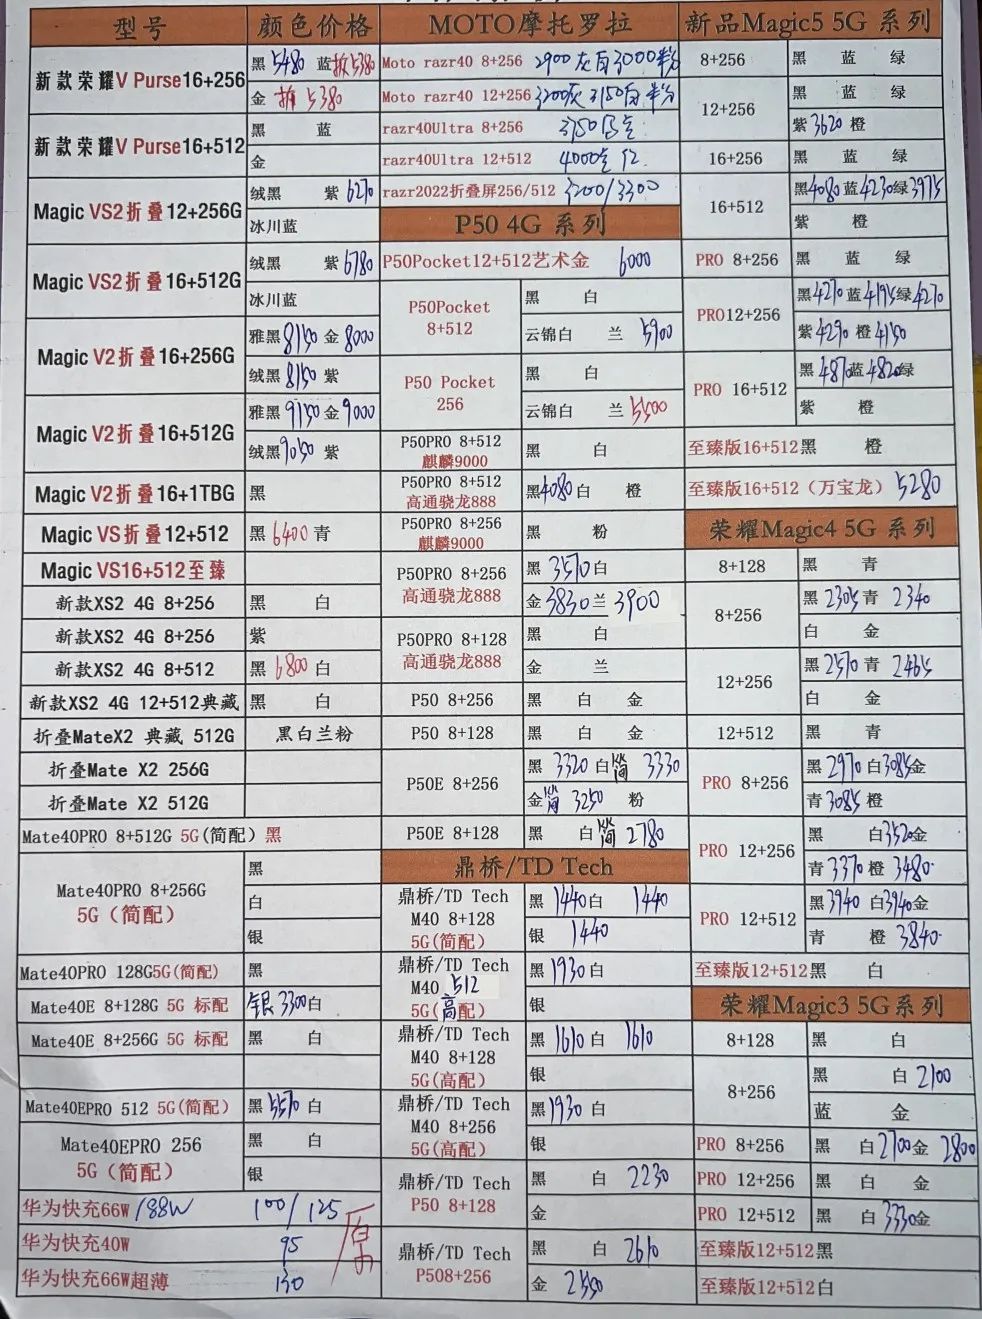 型号 颜色价格
新款荣耀V Purse16+256 黑 5480 蓝 拆5380
金 拆 5380
新款荣耀V Purse16+512 黑 蓝
金
Magic VS2折叠12+256G 绒黑 紫 6270
冰川蓝
Magic VS2折叠16+512G 绒黑 紫 6780
冰川蓝
Magic V2折叠16+256G 雅黑 8150 金 8000
绒黑 8150 紫
Magic V2折叠16+512G 雅黑 9150 金 9000
绒黑 9050 紫
Magic V2折叠16+1TBG 黑
Magic VS折叠12+512 黑 6400 青
Magic VS16+512至臻
新款XS2 4G 8+256 黑 白
新款XS2 4G 8+256 紫
新款XS2 4G 8+512 黑 6800 白
新款XS2 4G 12+512典藏 黑 白
折叠MateX2 典藏 512G 黑白兰粉
折叠Mate X2 256G
折叠Mate X2 512G
Mate40PRO 8+512G 5G(简配) 黑
Mate40PRO 8+256G
5G(简配)
黑
白
银
Mate40PRO 128G5G(简配) 黑
Mate40E 8+128G 5G 标配 银 3300 白
Mate40E 8+256G 5G 标配 黑 白
Mate40EPRO 512 5G(简配) 黑 5570 白
Mate40EPRO 256
5G(简配)
黑 白
银
华为快充66W /88W 100/125 原
华为快充40W 95
华为快充66W超薄 130
MOTO摩托罗拉
Moto razr40 8+256 2900灰 白3000半分
Moto razr40 12+256 3200灰 3150白 半分
razr40Ultra 8+256 3750
razr40Ultra 12+512 4000 红
razr2022折叠屏256/512 3200/3300
P50 4G 系列
P50Pocket12+512艺术金 6000
P50Pocket
8+512
黑 白
云锦白 兰 5900
P50 Pocket
256
黑 白
云锦白 兰 5500
P50PRO 8+512
麒麟9000
黑 白
P50PRO 8+512
高通骁龙888
黑 4080 白 橙
P50PRO 8+256
麒麟9000
黑 粉
P50PRO 8+256
高通骁龙888
黑 3570 白
金 3830 兰 3900
P50PRO 8+128
高通骁龙888
黑 白
金 兰
P50 8+256 黑 白 金
P50 8+128 黑 白 金
P50E 8+256 黑 3320 白 简 3330
金 简 3250 粉
P50E 8+128 黑 白 简 2780
鼎桥/TD Tech
鼎桥/TD Tech
M40 8+128
5G(简配)
黑 1440 白 1440
银 1440
鼎桥/TD Tech
M40 512
5G(高配)
黑 1930 白
银
鼎桥/TD Tech
M40 8+128
5G(高配)
黑 1610 白 1610
银
鼎桥/TD Tech
M40 8+256
5G(高配)
黑 1930 白
银
鼎桥/TD Tech
P50 8+128
黑 白 2230
金
鼎桥/TD Tech
P508+256
黑 白 2610
金 2550
新品Magic5 5G 系列
8+256 黑 蓝 绿
12+256 黑 蓝 绿
紫 3620 橙
16+256 黑 蓝 绿
16+512 黑 4080 蓝 4230 绿 3975
紫 橙
PRO 8+256 黑 蓝 绿
PRO12+256 黑 4270 蓝 4195 绿 4270
紫 4290 橙 4150
PRO 16+512 黑 4870 蓝 4820 绿
紫 橙
至臻版16+512 黑 橙
至臻版16+512(万宝龙) 5280
荣耀Magic4 5G 系列
8+128 黑 青
8+256 黑 2305 青 2340
白 金
12+256 黑 2570 青 2465
白 金
12+512 黑 青
PRO 8+256 黑 2970 白 3085 金
青 3085 橙
PRO 12+256 黑 白 3520 金
青 3370 橙 3480
PRO 12+512 黑 3940 白 3940 金
青 橙 3840
至臻版12+512 黑 白
荣耀Magic3 5G系列
8+128 黑 白
8+256 黑 白 2100
蓝 金
PRO 8+256 黑 白 2700 金 2800
PRO 12+256 黑 白 金
PRO 12+512 黑 白 3330 金
至臻版12+512 黑
至臻版12+512 白